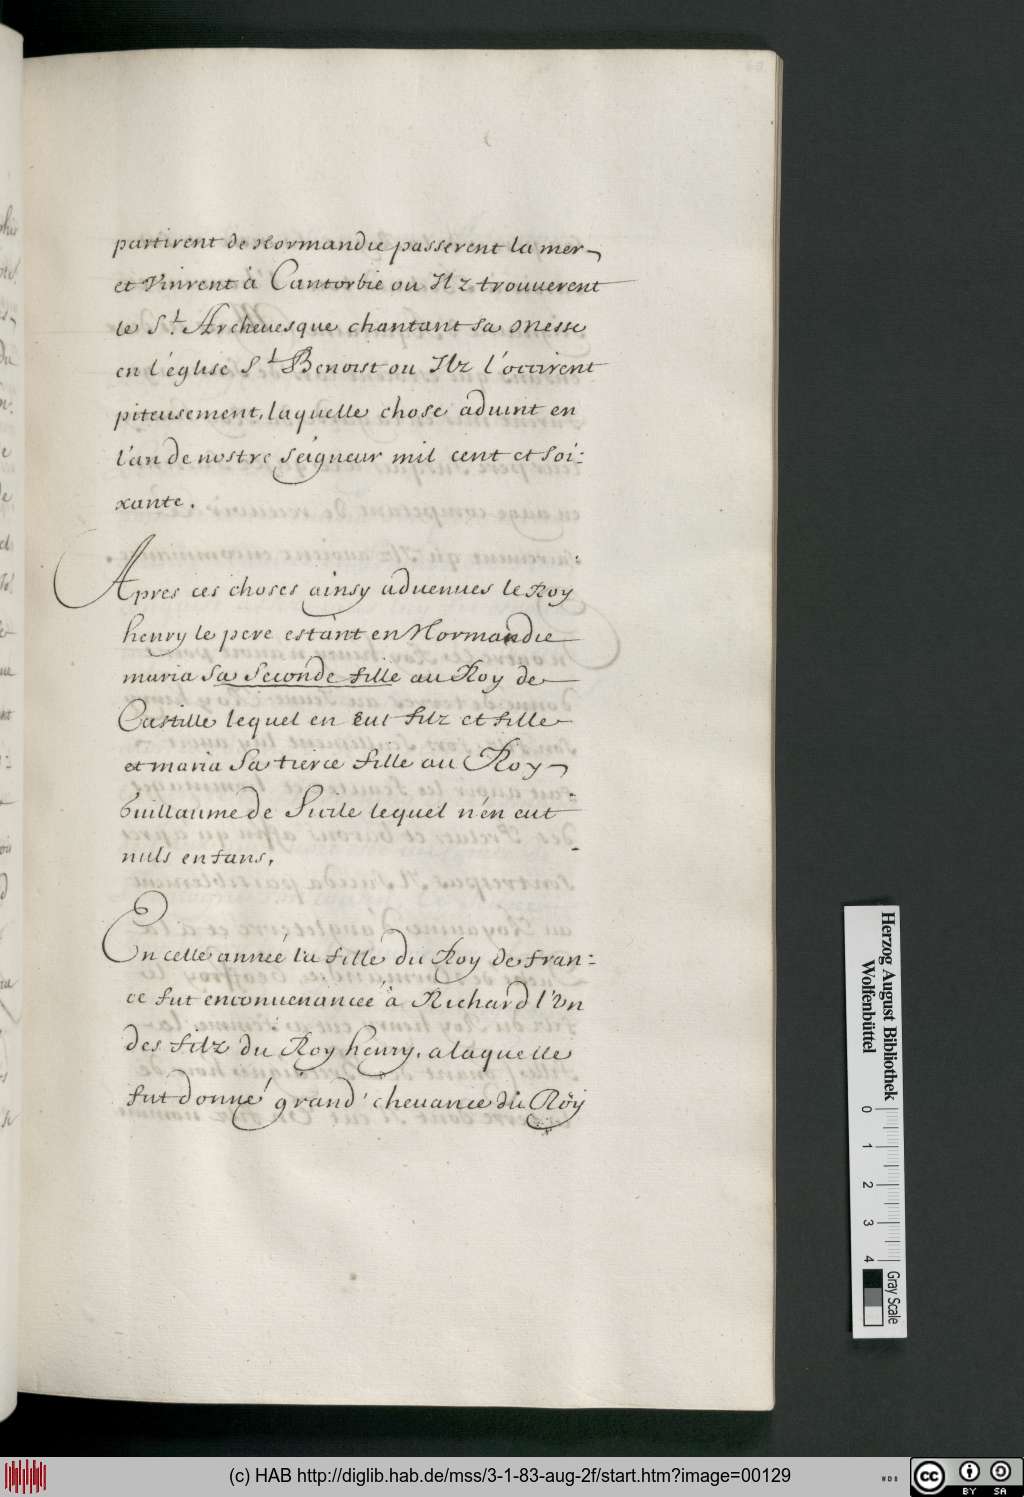 partirent de Normandie passerent la mer
et Vinrent à Cantorbie ou Ilz trouuerent
le St. Archeuesque chantant sa Messe
en l'église St. Benoist ou Ilz l'occirent
piteusement, laquelle chose aduint en
l'an de nostre seigneur mil cent et soi:
xante.
Apres ces choses ainsy aduenues le Roy
henry le pere estant en Normandie
maria sa seconde fille au Roy de
Castille lequel en Eut filz et fille
et maria sa tierce fille au Roy
Guillaume de Sicile lequel n'en eut
nuls enfans.
En celle année la fille du Roy de fran:
ce fut enconuenancée à Richard l'Un
des filz du Roy henry, a laquelle
fut donné grand cheuance du Roy
Herzog August Bibliothek
Wolfenbüttel
0 1 2 3 4
Gray Scale
(c) HAB http://diglib.hab.de/mss/3-1-83-aug-2f/start.htm?image=00129
WDB
cc BY SA